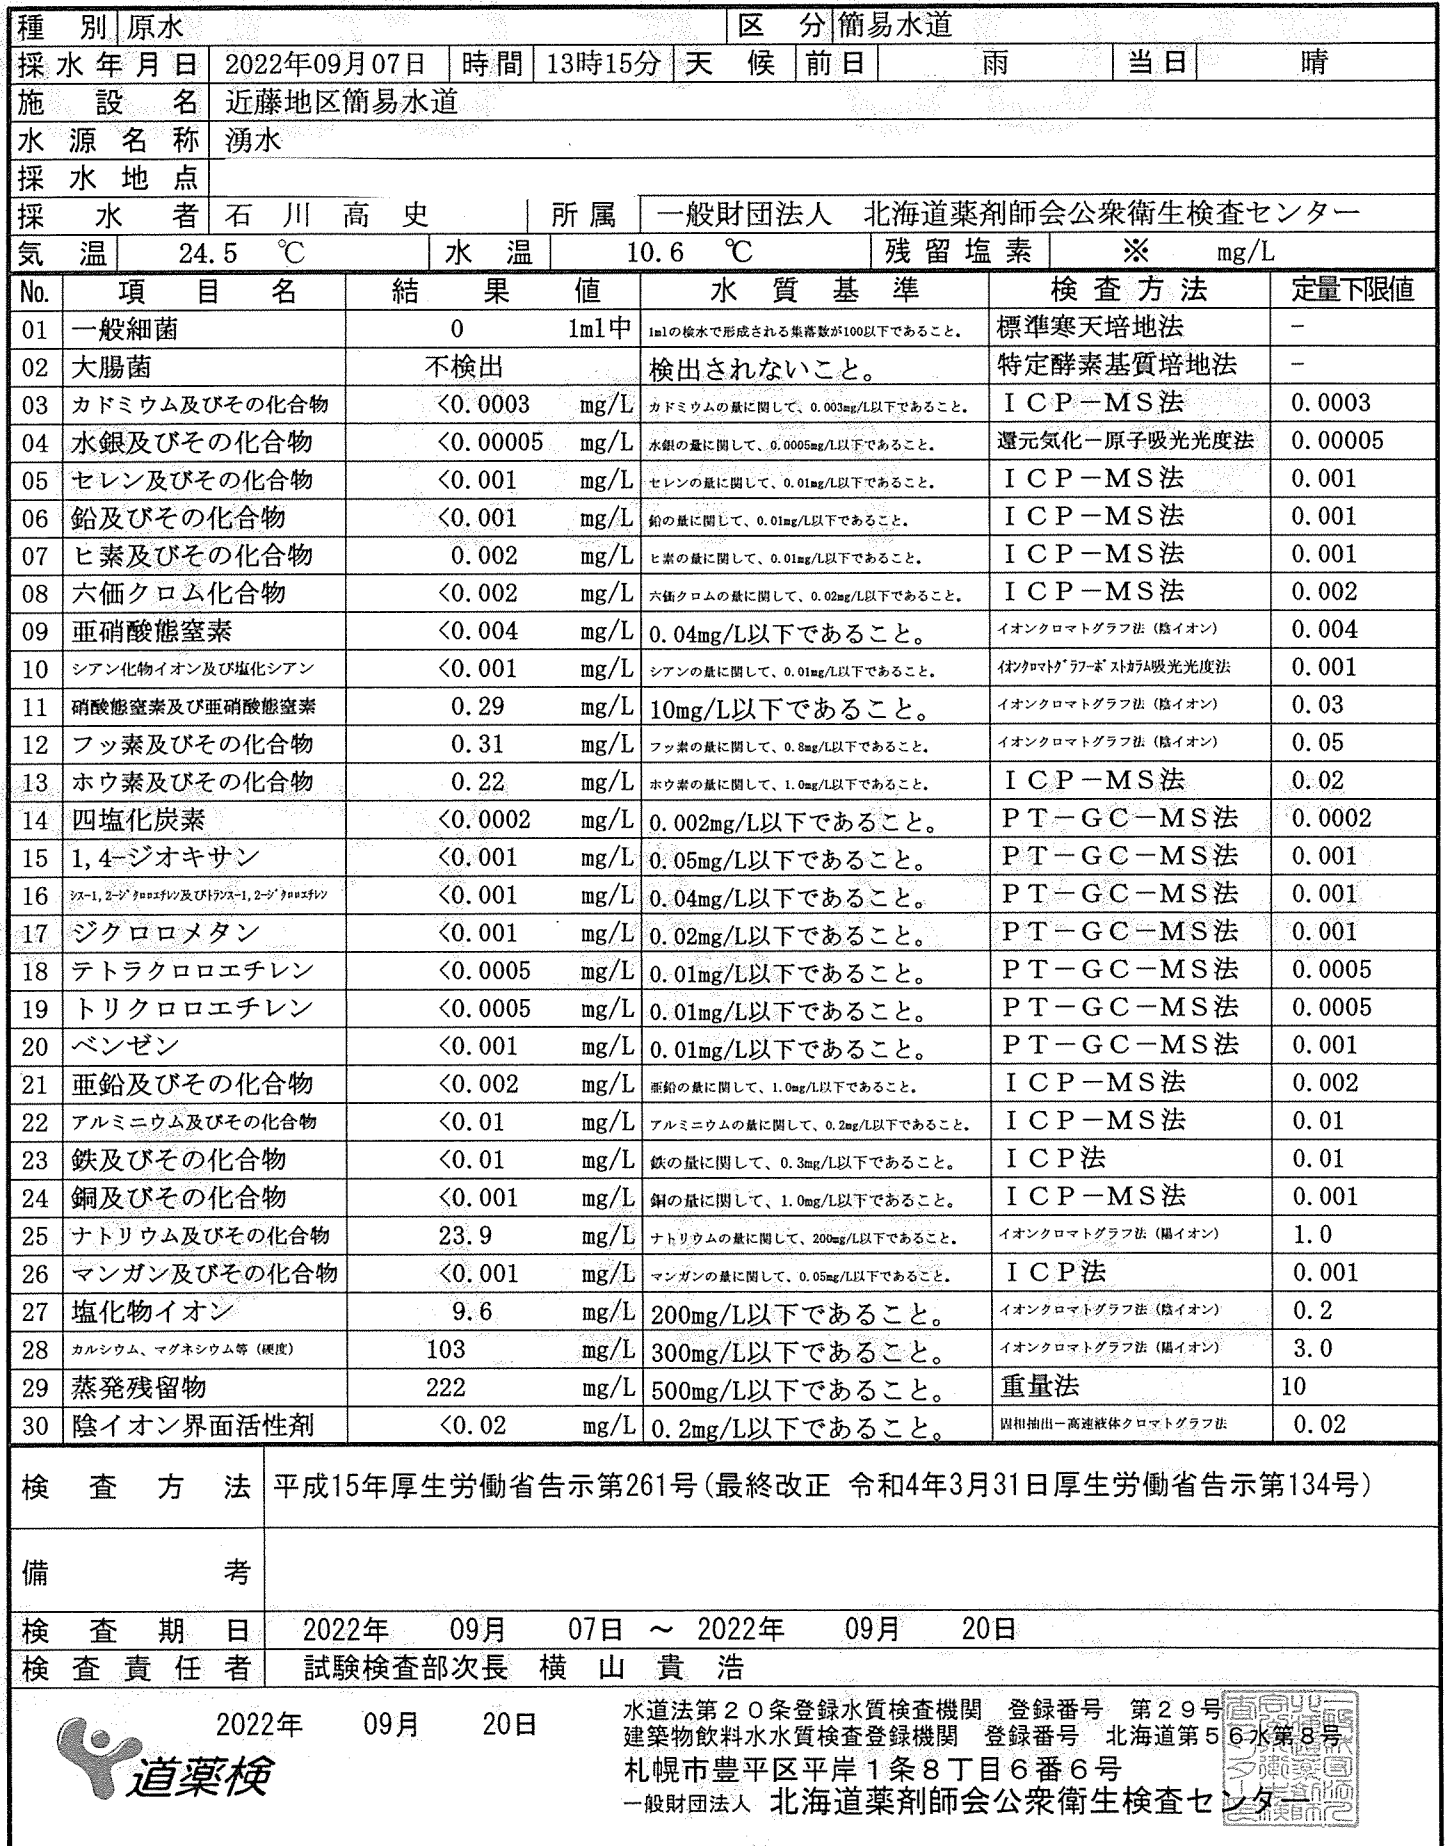 種 別 原水 区 分 簡易水道
採水年月日 2022年09月07日 時間 13時15分 天候 前日 雨 当日 晴
施設名 近藤地区簡易水道
水源名称 湧水
採水地点
採水者 石川高史 所属 一般財団法人 北海道薬剤師会公衆衛生検査センター
気温 24.5 ℃ 水温 10.6 ℃ 残留塩素 ※ mg/L
No. 項目名 結果値 水質基準 検査方法 定量下限値
01 一般細菌 0 1ml中 1mlの検水で形成される集落数が100以下であること。 標準寒天培地法 -
02 大腸菌 不検出 検出されないこと。 特定酵素基質培地法 -
03 カドミウム及びその化合物 <0.0003 mg/L カドミウムの量に関して、0.003mg/L以下であること。 ICP-MS法 0.0003
04 水銀及びその化合物 <0.00005 mg/L 水銀の量に関して、0.0005mg/L以下であること。 還元気化-原子吸光光度法 0.00005
05 セレン及びその化合物 <0.001 mg/L セレンの量に関して、0.01mg/L以下であること。 ICP-MS法 0.001
06 鉛及びその化合物 <0.001 mg/L 鉛の量に関して、0.01mg/L以下であること。 ICP-MS法 0.001
07 ヒ素及びその化合物 0.002 mg/L ヒ素の量に関して、0.01mg/L以下であること。 ICP-MS法 0.001
08 六価クロム化合物 <0.002 mg/L 六価クロムの量に関して、0.02mg/L以下であること。 ICP-MS法 0.002
09 亜硝酸態窒素 <0.004 mg/L 0.04mg/L以下であること。 イオンクロマトグラフ法（陰イオン） 0.004
10 シアン化物イオン及び塩化シアン <0.001 mg/L シアンの量に関して、0.01mg/L以下であること。 ｲｵﾝｸﾛﾏﾄｸﾞﾗﾌｰﾎﾟｽﾄｶﾗﾑ吸光光度法 0.001
11 硝酸態窒素及び亜硝酸態窒素 0.29 mg/L 10mg/L以下であること。 イオンクロマトグラフ法（陰イオン） 0.03
12 フッ素及びその化合物 0.31 mg/L フッ素の量に関して、0.8mg/L以下であること。 イオンクロマトグラフ法（陰イオン） 0.05
13 ホウ素及びその化合物 0.22 mg/L ホウ素の量に関して、1.0mg/L以下であること。 ICP-MS法 0.02
14 四塩化炭素 <0.0002 mg/L 0.002mg/L以下であること。 PT-GC-MS法 0.0002
15 1,4-ジオキサン <0.001 mg/L 0.05mg/L以下であること。 PT-GC-MS法 0.001
16 ｼｽｰ1,2-ｼﾞｸﾛﾛｴﾁﾚﾝ及びﾄﾗﾝｽｰ1,2-ｼﾞｸﾛﾛｴﾁﾚﾝ <0.001 mg/L 0.04mg/L以下であること。 PT-GC-MS法 0.001
17 ジクロロメタン <0.001 mg/L 0.02mg/L以下であること。 PT-GC-MS法 0.001
18 テトラクロロエチレン <0.0005 mg/L 0.01mg/L以下であること。 PT-GC-MS法 0.0005
19 トリクロロエチレン <0.0005 mg/L 0.01mg/L以下であること。 PT-GC-MS法 0.0005
20 ベンゼン <0.001 mg/L 0.01mg/L以下であること。 PT-GC-MS法 0.001
21 亜鉛及びその化合物 <0.002 mg/L 亜鉛の量に関して、1.0mg/L以下であること。 ICP-MS法 0.002
22 アルミニウム及びその化合物 <0.01 mg/L アルミニウムの量に関して、0.2mg/L以下であること。 ICP-MS法 0.01
23 鉄及びその化合物 <0.01 mg/L 鉄の量に関して、0.3mg/L以下であること。 ICP法 0.01
24 銅及びその化合物 <0.001 mg/L 銅の量に関して、1.0mg/L以下であること。 ICP-MS法 0.001
25 ナトリウム及びその化合物 23.9 mg/L ナトリウムの量に関して、200mg/L以下であること。 イオンクロマトグラフ法（陽イオン） 1.0
26 マンガン及びその化合物 <0.001 mg/L マンガンの量に関して、0.05mg/L以下であること。 ICP法 0.001
27 塩化物イオン 9.6 mg/L 200mg/L以下であること。 イオンクロマトグラフ法（陰イオン） 0.2
28 カルシウム、マグネシウム等（硬度） 103 mg/L 300mg/L以下であること。 イオンクロマトグラフ法（陽イオン） 3.0
29 蒸発残留物 222 mg/L 500mg/L以下であること。 重量法 10
30 陰イオン界面活性剤 <0.02 mg/L 0.2mg/L以下であること。 固相抽出-高速液体クロマトグラフ法 0.02
検査方法 平成15年厚生労働省告示第261号(最終改正 令和4年3月31日厚生労働省告示第134号)
備考
検査期日 2022年 09月 07日 ～ 2022年 09月 20日
検査責任者 試験検査部次長 横山貴浩
2022年 09月 20日
道薬検
水道法第20条登録水質検査機関 登録番号 第29号
建築物飲料水水質検査登録機関 登録番号 北海道第56水第8号
札幌市豊平区平岸1条8丁目6番6号
一般財団法人 北海道薬剤師会公衆衛生検査センター